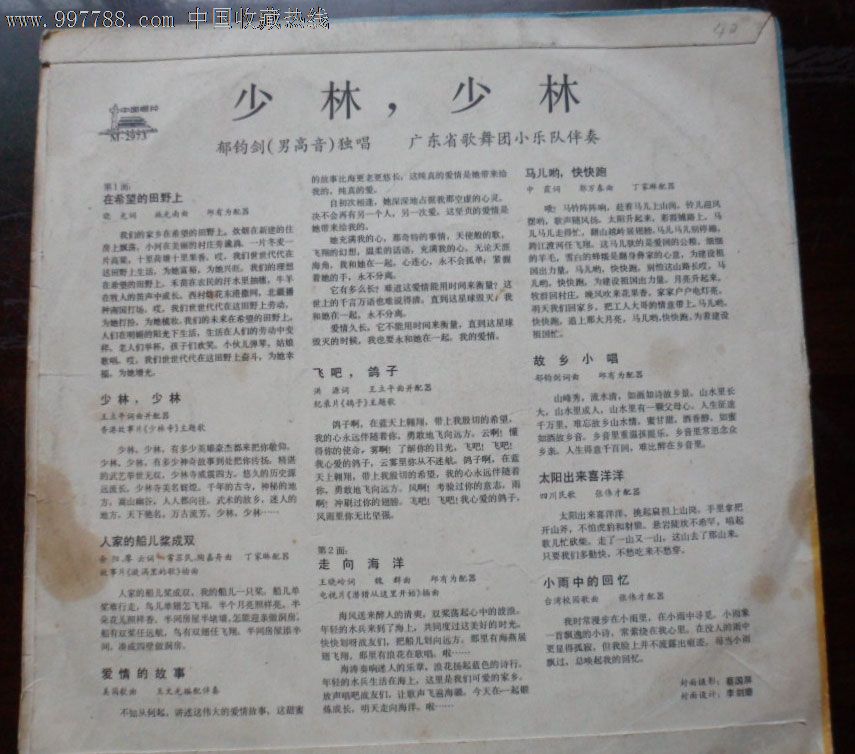 www.997788.com 中国收藏热线
少林，少林
中国唱片
XL-2973
郁钧剑(男高音)独唱 广东省歌舞团小乐队伴奏
第1面：
在希望的田野上
晓光词 施光南曲 邱有为配器
我们的家乡在希望的田野上，炊烟在新建的住
房上飘荡，小河在美丽的村庄旁流淌。一片冬麦一
片高粱，十里荷塘十里果香。哎，我们世世代代在
这田野上生活，为她富裕，为她兴旺。我们的理想
在希望的田野上，禾苗在农民的汗水里抽穗，牛羊
在牧人的笛声中成长。西村纺花东港撒网，北疆播
种南国打场。哎，我们世世代代在这田野上劳动，
为她打扮，为她梳妆。我们的未来在希望的田野上，
人们在明媚的阳光下生活，生活在人们的劳动中变
样。老人们举杯，孩子们欢笑，小伙儿弹琴，姑娘
歌唱。哎，我们世世代代在这田野上奋斗，为她幸
福，为她增光。
少林，少林
王立平词曲并配器
香港故事片《少林寺》主题歌
少林，少林，有多少英雄豪杰都来把你敬仰。
少林，少林，有多少神奇故事到处把你传扬。精湛
的武艺举世无双，少林寺威震四方。悠久的历史源
远流长，少林寺美名辉煌。千年的古寺，神秘的地
方，嵩山幽谷，人人都向往，武术的故乡，迷人的
地方，天下驰名，万古流芳。少林，少林……
人家的船儿桨成双
常苏民、陶嘉舟曲 丁家琳配器
故事片《漩涡里的歌》插曲
人家的船儿桨成双，我的船儿一只桨，船儿单
桨难行走，鸟儿单翅怎飞翔。半个月亮照样亮，半
朵花儿照样香，半间房屋半堵墙，怎能迎亲做洞房。
船有双桨任远航，鸟有双翅任飞翔。半间房屋添半
间，凑成四壁做洞房。
爱情的故事
美国歌曲 王文光编配伴奏
不知从何起，讲述这伟大的爱情故事，这甜蜜
的故事比海更老更悠长，这纯真的爱情是她带来给
我的，纯真的爱。
自初次相逢，她深深地占据我那空虚的心灵。
决不会再有另一个人，另一次爱。这坚贞的爱情是
她带来给我的。
她充满我的心，那奇特的事情，天使般的歌，
飞翔的幻想，温柔的话语，充满我的心，无论天涯
海角，我和她在一起，心连心，永不会孤单；紧握
着她的手，永不分离。
它有多么长？难道这爱情能用时间来衡量？这
世上的千言万语也难说得清。直到这星球毁灭，我
和她在一起，永不分离。
爱情久长，它不能用时间来衡量，直到这星球
毁灭的时候，我也要永和她在一起，我的爱情。
飞吧，鸽子
洪源词 王立平曲并配器
纪录片《鸽子》主题歌
鸽子啊，在蓝天上翱翔，带上我殷切的希望，
我的心永远伴随着你，勇敢地飞向远方。云啊！懂
得你的使命，雾啊！了解你的目光，飞吧！飞吧！
我心爱的鸽子，云雾里你从不迷航。鸽子啊，在蓝
天上翱翔，带上我殷切的希望，我的心永远伴随着
你，勇敢地飞向远方。风啊！考验过你的意志，雨
啊！冲刷过你的翅膀。飞吧！飞吧！我心爱的鸽子，
风雨里你无比坚强。
第2面：
走向海洋
王晓岭词 魏群曲 邱有为配器
电视片《潜猎从这里开始》插曲
海风送来醉人的清爽，双桨荡起心中的波浪。
年轻的水兵来到了海上，共同度过这美好的时光。
快快划呀战友们，把船儿划向远方。那里有海燕展
翅飞翔，那里有浪花在歌唱。啦……
海涛奏响迷人的乐章，浪花扬起蓝色的诗行。
年轻的水兵生活在海上，这里是我们可爱的家乡。
放声唱吧战友们，让歌声飞遍海疆。今天在一起锻
炼成长，明天走向海洋。啦……
马儿哟，快快跑
中霞词 郭万春曲 丁家琳配器
哦！马铃阵阵响，赶着马儿上山岗，铃儿迎风
摆哟，歌声随风扬。太阳升起来，彩霞铺路上，马
儿马儿走得忙，翻山越岭展翅膀，马儿马儿别停蹄，
跨江渡河任飞翔。这马儿驮的是爱国的公粮，细细
的羊毛，雪白的蜂蜡是翻身骨家的心意，为建设祖
国出力量。马儿哟，快快跑，别怕这山路长哎，马
儿哟，快快跑，为建设祖国出力量。月亮升起来，
牧群回村庄，晚风吹来花果香，家家户户电灯亮，
明天我们回家乡，把工人大哥的情意带上。马儿哟，
快快跑，追上那大月亮，马儿哟，快快跑，为着建设
祖国忙。
故乡小唱
郁钧剑词曲 邱有为配器
山峰秀，流水清，如画如诗故乡景。山水里长
大，山水里成人，山水里有一颗父母心。人生征途
千万里，难忘故乡山水情。蜜甘甜，酒香醇，如蜜
如酒故乡音。乡音里重温孩提乐，乡音里常思念众
乡亲。人生得意千百回，难比醉在乡音里。
太阳出来喜洋洋
四川民歌 张伟才配器
太阳出来喜洋洋，挑起扁担上山岗。手里拿把
开山斧，不怕虎豹和豺狼。悬岩陡坎不希罕，唱起
歌儿忙砍柴。走了一山又一山，这山去了那山来。
只要我们多勤快，不愁吃来不愁穿。
小雨中的回忆
台湾校园歌曲 张伟才配器
我时常漫步在小雨里，在小雨中寻觅。小雨象
一首飘逸的小诗，常萦绕在我心里。在没人的雨中
更显得孤寂，但我脸上并不流露出痕迹。每当小雨
飘过，总唤起我的回忆。
封面摄影：蔡国屏
封面设计：李剑雄